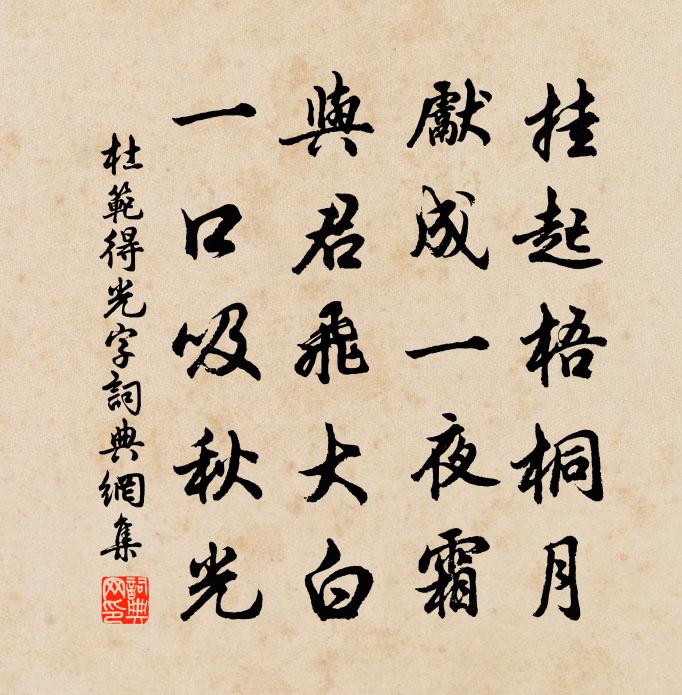 挂起梧桐月
獻成一夜霜
與君飛大白
一口吸秋光
杜範得光字詞典網集
詞典網印